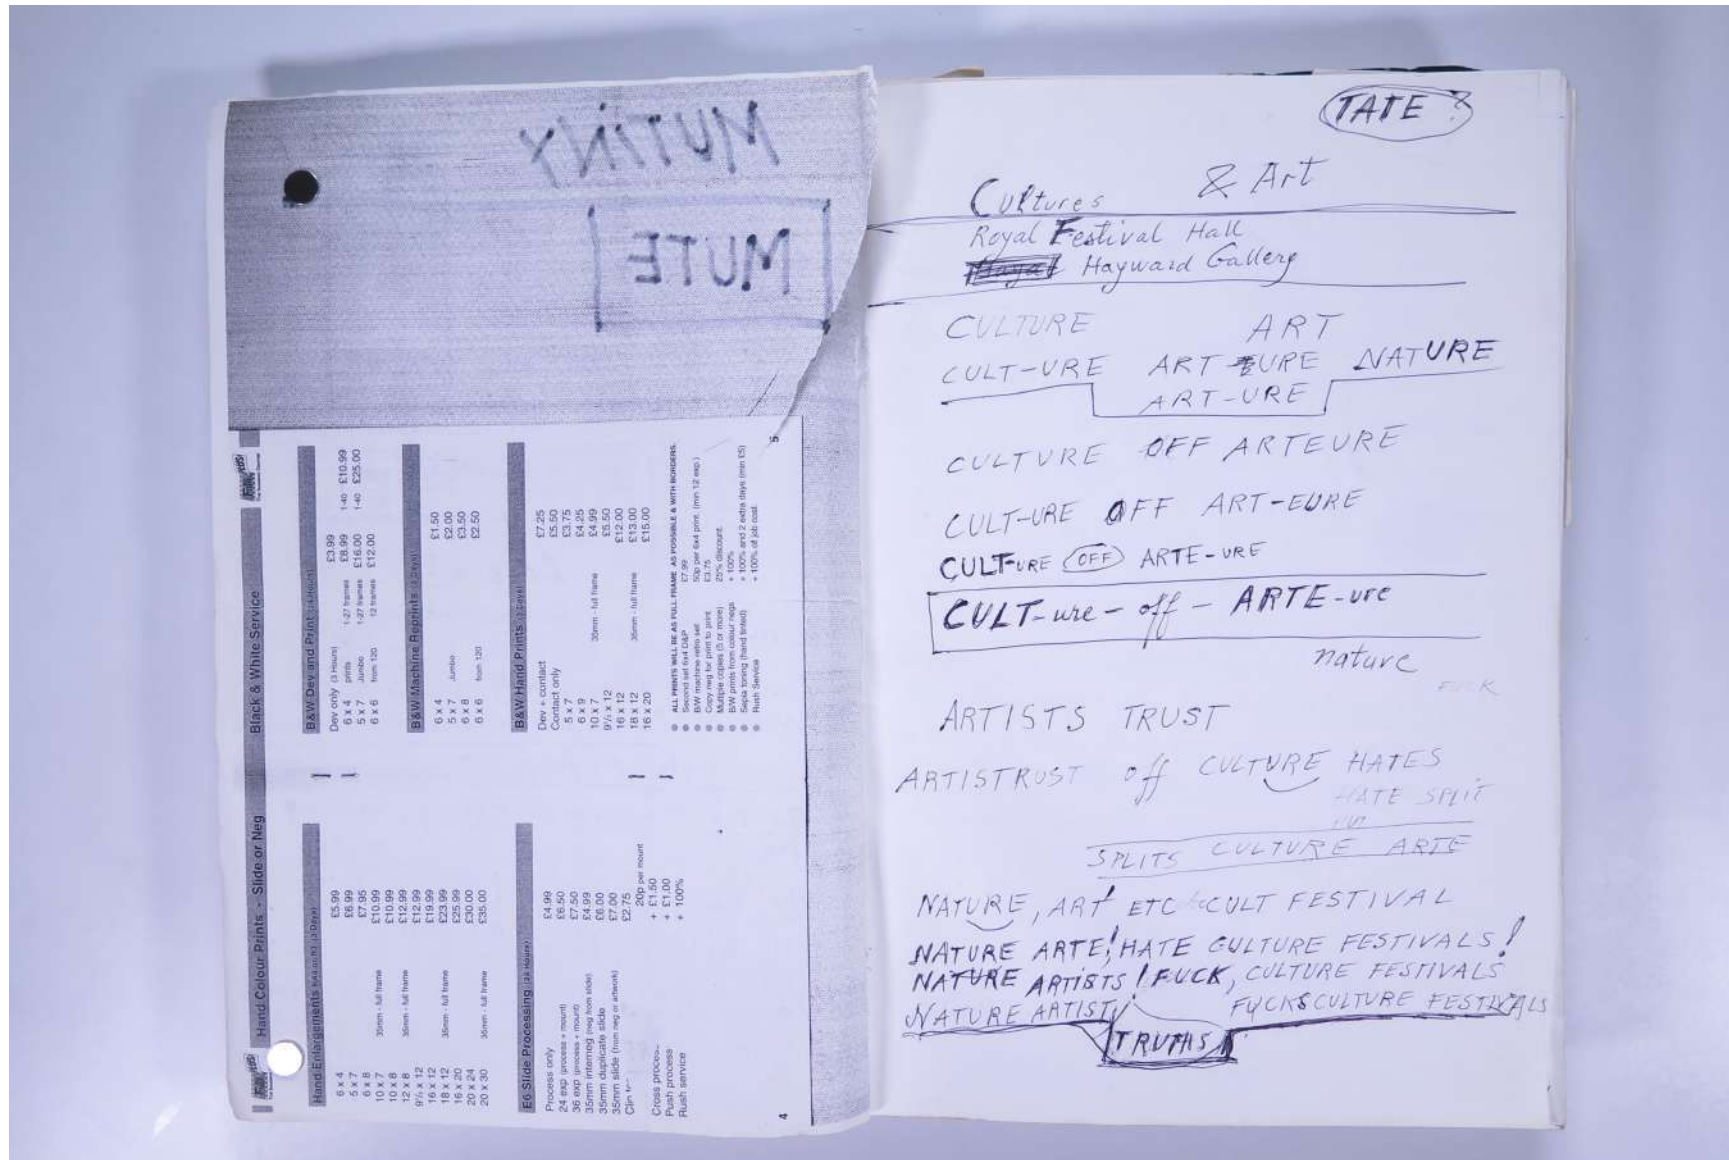 MUTINY
MUTE
Hand Colour Prints - Slide or Neg
Hand Enlargements
6 x 4 £5.99
5 x 7 £6.99
6 x 8 £7.95
10 x 7 35mm - full frame £10.99
10 x 8 £10.99
12 x 8 35mm - full frame £12.99
9½ x 12 £12.99
16 x 12 £19.99
18 x 12 35mm - full frame £23.99
16 x 20 £25.99
20 x 24 £30.00
20 x 30 35mm - full frame £35.00
E6 Slide Processing (24 Hours)
Process only £4.99
24 exp (process + mount) £6.50
36 exp (process + mount) £7.50
35mm interneg (neg from slide) £4.99
35mm duplicate slide £6.00
35mm slide (from neg or artwork) £7.00
£2.75
20p per mount
Cross process + £1.50
Push process + £1.00
Rush service + 100%
4
Black & White Service
B&W Dev and Print (24 Hours)
Dev only (3 Hours) £3.99
6 x 4 prints 1-27 frames £8.99 1-40 £10.99
5 x 7 Jumbo 1-27 frames £16.00 1-40 £25.00
6 x 6 from 120 12 frames £12.00
B&W Machine Reprints
6 x 4 £1.50
5 x 7 Jumbo £2.00
6 x 8 £3.50
6 x 6 from 120 £2.50
B&W Hand Prints
Dev + contact £7.25
Contact only £5.50
5 x 7 £3.75
6 x 9 £4.25
10 x 7 35mm - full frame £4.99
9½ x 12 £5.50
16 x 12 £12.00
18 x 12 35mm - full frame £13.00
16 x 20 £15.00
ALL PRINTS WILL BE AS FULL FRAME AS POSSIBLE & WITH BORDERS.
Second set 6x4 D&P £7.99
B/W machine retro set 50p per 6x4 print. (min 12 exp.)
Copy neg for print to print £3.75
Multiple copies (5 or more) 25% discount
B/W prints from colour negs + 100%
Sepia toning (hand tinted) + 100% and 2 extra days (min £5)
Rush Service + 100% of job cost.
5
TATE ?
Cultures & Art
Royal Festival Hall
Hayward Gallery
CULTURE ART
CULT-URE ART URE NATURE
ART-URE
CULTURE OFF ARTEURE
CULT-URE OFF ART-EURE
CULT-URE OFF ARTE-URE
CULT-ure - off - ARTE-ure
nature
FUCK
ARTISTS TRUST
ARTISTRUST off CULTURE HATES
HATE SPLIT
SPLITS CULTURE ARTE
NATURE, ART ETC CULT FESTIVAL
NATURE ARTE! HATE CULTURE FESTIVALS!
NATURE ARTISTS! FUCK, CULTURE FESTIVALS
NATURE ARTIST, FUCKS CULTURE FESTIVALS
TRUTHS